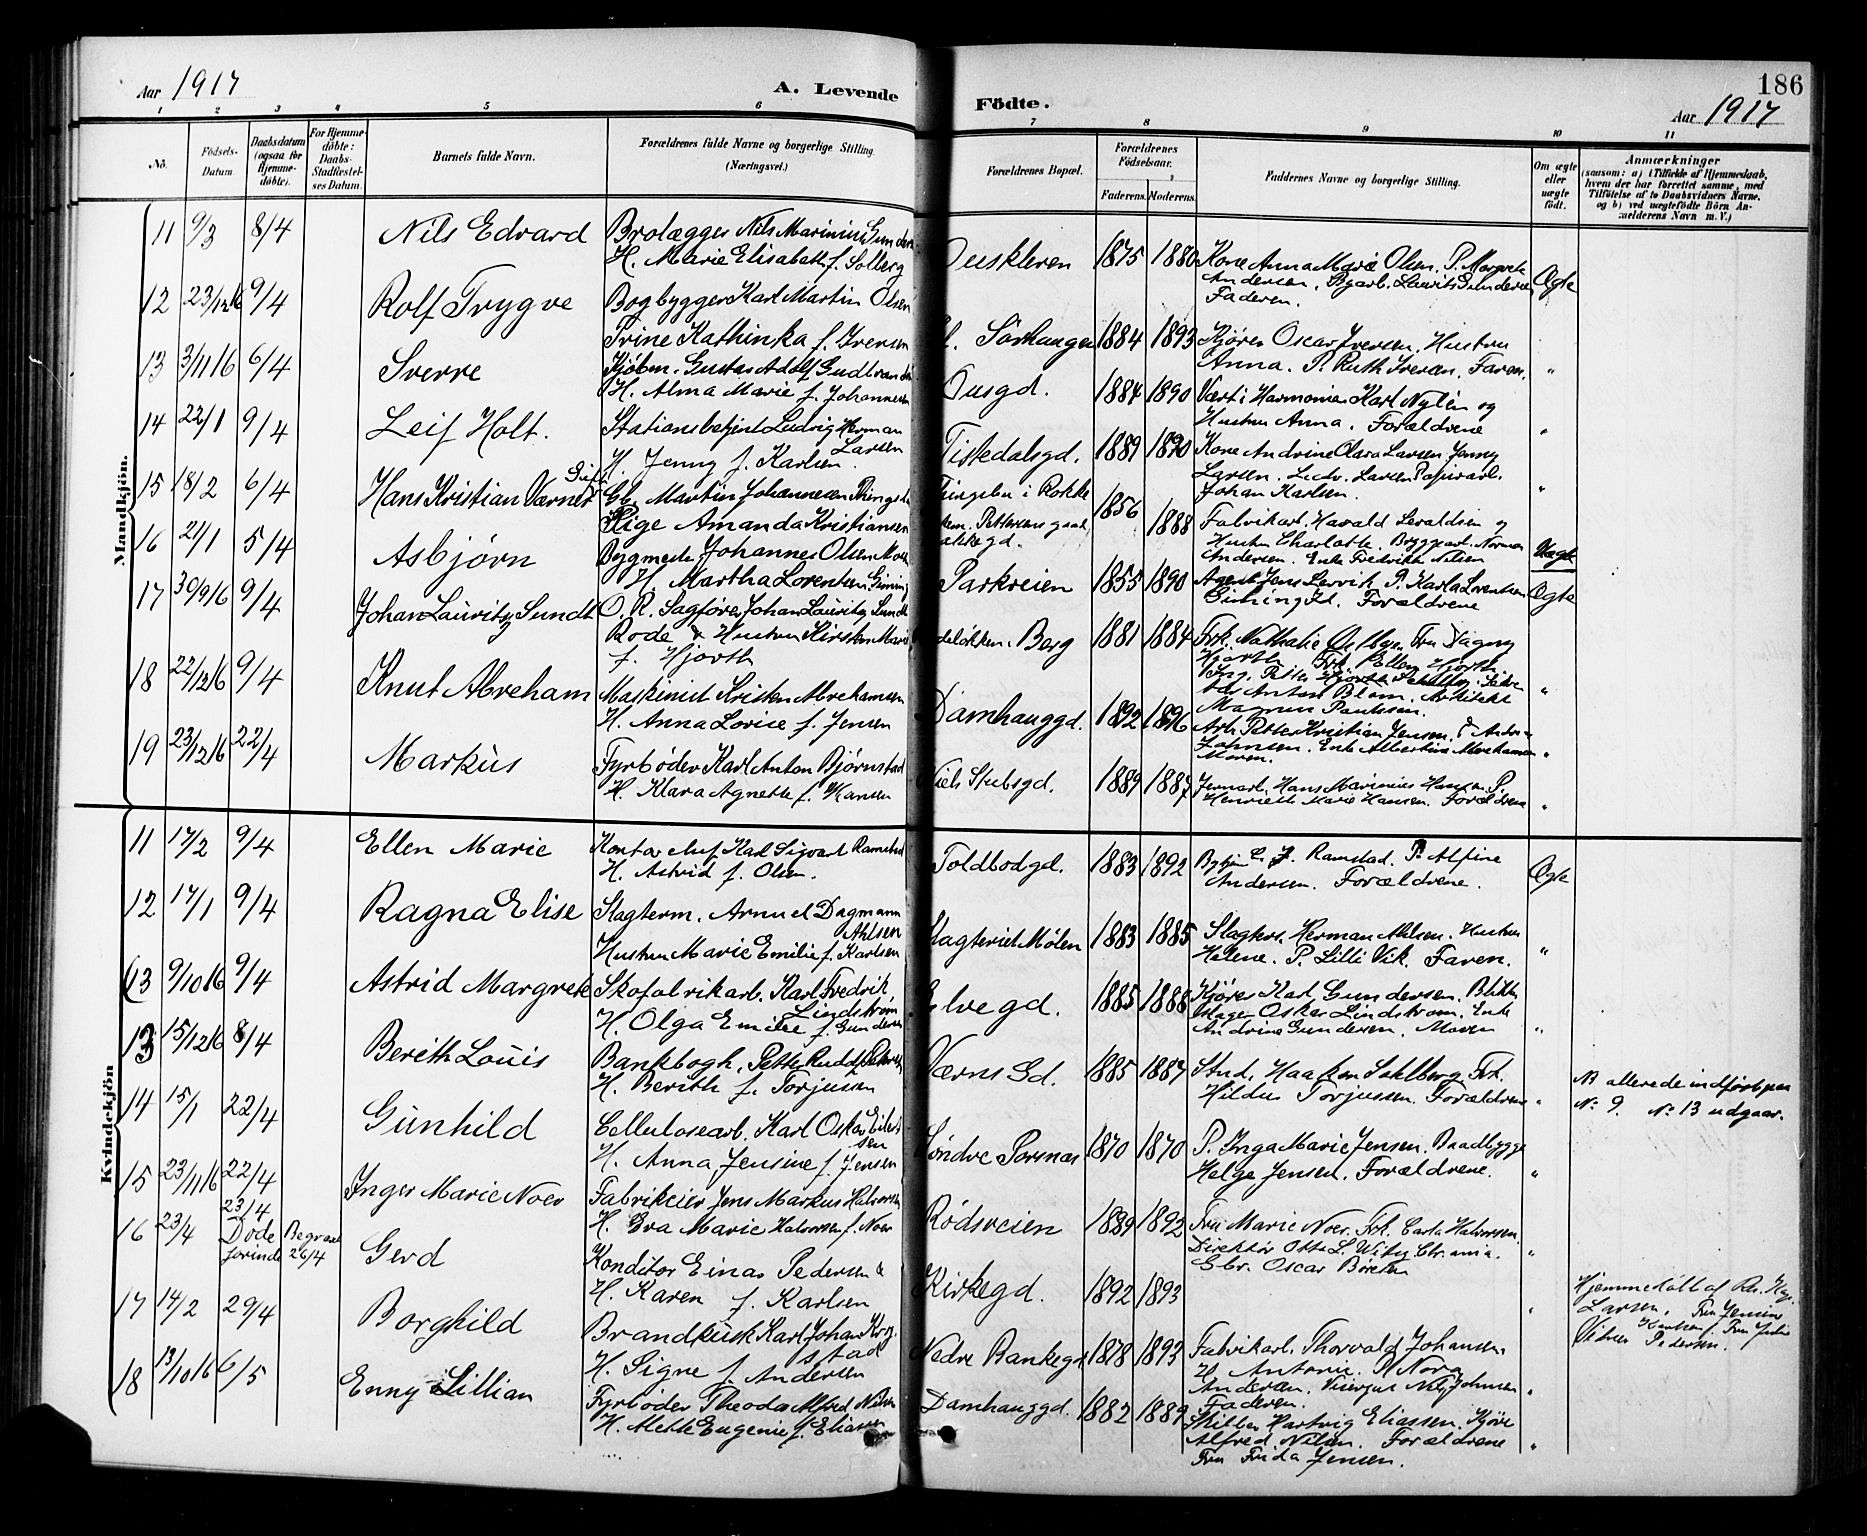 Aar 1917
A. Levende
Födte.
186
Aar 1917
1 2 3 4 5 6 7 8 9 10 11
No.
Födsels-Datum.
Daabsdatum (ogsaa for Hjemmedöbte).
For Hjemmedöbte: Daabs-Stadfæstelses Datum.
Barnets fulde Navn.
Forældrenes fulde Navne og borgerlige Stilling
(Næringsvei.)
Forældrenes Bopæl.
Forældrenes Födselsaar.
Faderens. Moderens.
Faddernes Navne og borgerlige Stilling.
Om ægte eller uægte födt.
Anmærkninger
(saasom: a) i Tilfælde af Hjemmedaab,
hvem der har forrettet samme, med
Tilföielse af to Daabsvidners Navne.
og b) ved uægtefödte Börn An-
melderens Navn m. V.)
Mandkjön.
11 9/3 8/4 Nils Edvard Brolægger Nils Marinius
H. Marie Elisabeth f. Solberg
1875 1880 Kone Anna Marie Olsen. P.
Andersen.
Faderen.
Ægte
12 23/12 16 9/4 Rolf Trygve Bogbygger Karl Martin Olsen
Trine Kathinka f. Iversen
Sörhaugen 1884 1893 Kjörer Oscar Iversen. Hustru
Anna. P. Ruth Iversen. Faren. "
13 3/11 16 6/4 Sverre Kjöbm. Gustav Adolf
H. Alma Marie f. Johannesen
Ousgd. 1884 1890 Vært i Harmonien Karl Nylén og
Hustru Anna. Forældrene "
14 22/1 9/4 Leif Holt. Stationsbetjent Ludvig Herman
Larsen
H. Jenny f. Karlsen.
Tistedalsgd. 1889 1890 Kone Andrine Olava Larsen. Jenny
Larsen. Ludv. Larsen Papirarb.
Johan Karlsen. "
15 18/2 6/4 Hans Kristian Værner Gb. Martin Johannesen
Pige Amanda Kristiansen
i Rokke
1856 1888 Fabrikarb. Harald Levaldsen og
Hustru Charlotte. Bryggearb. Norman
Andersen. Enke Fredrikke Nilsen Uægte
16 21/1 5/4 Asbjørn Bygmester Johannes Olsen
H. Martha Lorentsen
Parkveien 1855 1890 Agent Jens Lervik P. Karla Lorentsen
Forældrene Ægte
17 30/9 16 9/4 Johan Lauritz Sundt O.R. Sagfører Johan Lauritz Sundt
Rode & Hustru Kirsten Marie
f. Hjorth
Berg 1881 1884 Frk. Nathalie Fru Dagny
Hjorth Frk. Ellen Hjorth.
Anton Blom. Arkitekt
Magnus Paulsson. "
18 22/12 16 9/4 Knut Abreham Maskinist Kristen Abrehamsen
H. Anna Lovise f. Jensen
Damhauggd. 1892 1896 Arb. Petter Kristian Jensen.
Johnsen. Enke Albertine Abrehamsen
Moren. "
19 23/12 16 22/4 Markus Fyrbøder Karl Anton Bjørnstad
H. Klara Agnethe f. Hansen
Niels Stubsgd. 1889 1887 Jernarb. Hans Marinius Hansen P.
Henriette Marie Hansen. Forældrene "
Kvindekjön
11 17/2 9/4 Ellen Marie Kontorchef Karl Sigvart Ramstad
H. Astrid f. Olsen.
Toldbodgd. 1883 1892 Ramstad. P. Alfine
Andersen. Forældrene. Ægte
12 17/1 9/4 Ragna Elise Slagterm. Arnuel Dagmann
Ahlsen
Hustru Marie Emilie f. Karlsen
Slagteriet Mølen 1883 1885 Slagter. Herman Ahlsen. Hustru
Helene. P. Lilli Vik. Faren. "
(13 9/10 16 9/4 Astrid Margrete Skofabrikarb. Karl Fredrik
Lindstrøm
H. Olga Emilie f. Gundersen
Elvegd. 1885 1888 Kjører Karl Gundersen. Blikken
slager Oskar Lindstrøm. Enke
Andrine Gundersen. Moren "
13 15/12 16 8/4 Berith Louis Bankbogh. Petter Rudolf
H. Berith f. Torjussen
Værns Gd. 1885 1887 Stud. Haaken Sahlberg. Frk.
Hildus Torjussen. Forældrene "
NB allerede indført paa
No 9. No 13 udgaar.
14 15/1 22/4 Gunhild Cellulosearb. Karl Oskar Eilert
sen
H. Anna Jensine f. Jensen
Söndre Porsnæs 1870 1870 P. Inga Marie Jensen. Baadbygger
Helge Jensen. Forældrene. "
15 23/11 16 22/4 Inger Marie Noer Fabrikeier Jens Markus Halvorsen
H. Eva Marie Halvorsen f. Noer
Rödsveien 1889 1892 Fru Marie Noer. Frk. Carla Halvorsen.
Direktör Otto L. Chr.ania.
Gbr. Oscar "
16 23/4 23/4
Döde
forinden Begravet
26/4 Gerd Konditor Einar Pedersen &
H. Karen f. Karlsen
Kirkegd. 1892 1893 "
Hjemmedøbt af
Larsen. Fru Jensine
Fru
Pedersen.
17 14/2 29/4 Borghild Brandkusk Karl Johan
stad
H. Signe f. Andersen
Nedre Bankegd 1878 1893 Fabrikarb. Thorvald Johansen
H. Antonie. P. Nora
Andersen. Visergut Johnsen
Faderen. "
18 13/10 16 6/5 Enny Lillian Fyrbøder Theodor Alfred Nilsen
H. Mette Eugenie f. Eliassen
Damhauggd. 1882 1889 Skibber Hartvig Eliassen. Kjører
Alfred Nilsen. Forældrene
Fru Frida Jensen. "